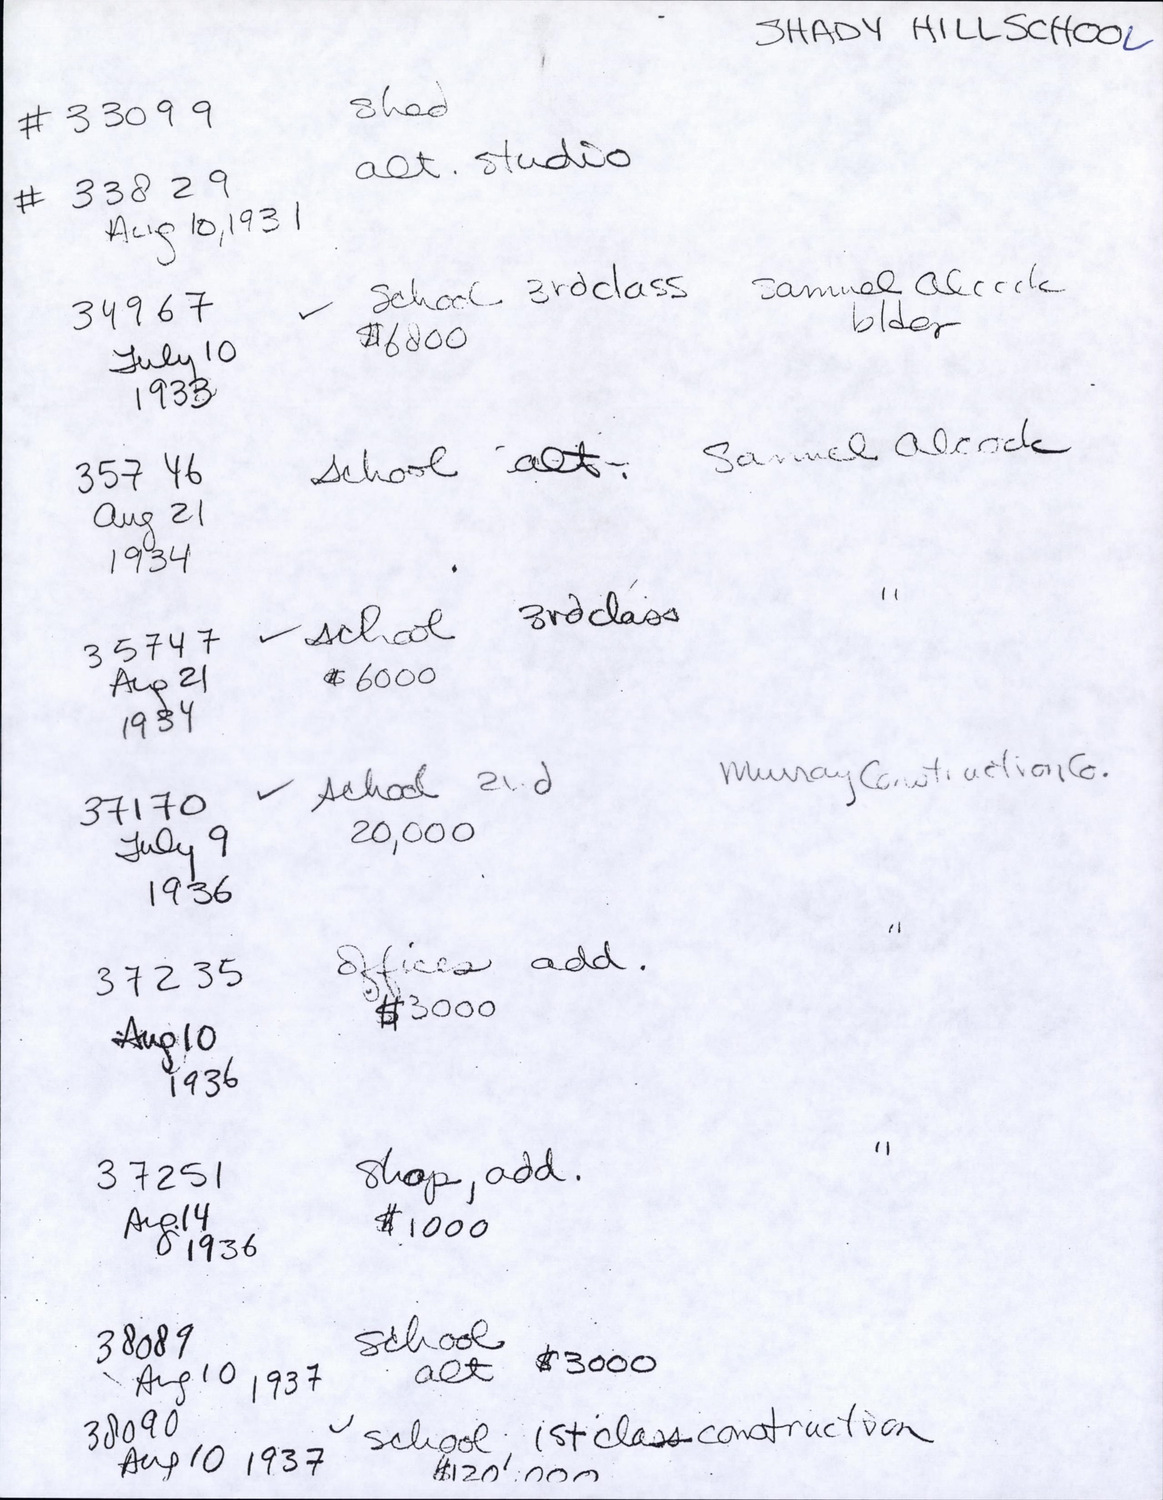 SHADY HILL SCHOOL
# 33099 shed
# 33829 alt. studio
Aug 10, 1931
34967 ✓ School 3rd class Samuel Alcock
July 10 $6800 blder
1933
35746 school alt. Samuel Alcock
Aug 21
1934
35747 ✓ school 3rd class "
Aug 21 $6000
1934
37170 ✓ school 2nd Murray Construction Co.
July 9 20,000
1936
37235 offices add. "
Aug 10 $3000
1936
37251 shop, add. "
Aug. 14 $1000
1936
38089 school
Aug 10, 1937 alt $3000
38090 ✓ school, 1st class construction
Aug 10 1937 $120,000